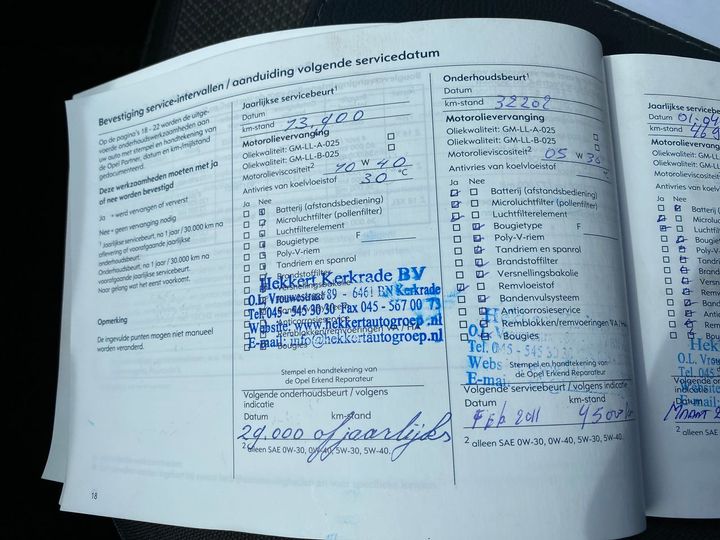 Bevestiging service-intervallen / aanduiding volgende servicedatum
Op de pagina's 18 - 22 worden de uitge-
voerde onderhoudswerkzaamheden aan
uw auto met stempel en handtekening van
de Opel Partner, datum en km-/mijlstand
gedocumenteerd.
Deze werkzaamheden moeten met ja
of nee worden bevestigd
Ja = werd vervangen of ververst
Nee = geen vervanging nodig
1 Jaarlijkse servicebeurt, na 1 jaar / 30.000 km na
aflevering of voorafgaande jaarlijkse
onderhoudsbeurt.
Onderhoudsbeurt, na 1 jaar / 30.000 km na
voorafgaande jaarlijkse servicebeurt.
Naar gelang wat het eerst voorkomt.
Opmerking
De ingevulde punten mogen niet manueel
worden veranderd.
18
Jaarlijkse servicebeurt1
Datum
km-stand 13.400
Motorolievervanging
Oliekwaliteit: GM-LL-A-025
Oliekwaliteit: GM-LL-B-025
Motorolieviscositeit2 10 W 40
Antivries van koelvloeistof 30 °C
Ja Nee
Batterij (afstandsbediening)
Microluchtfilter (pollenfilter)
Luchtfilterelement
Bougietype F
Poly-V-riem
Tandriem en spanrol
Brandstoffilter
Versnellingsbakolie
Anticorrosieservice
Remblokken/remvoeringen VA / HA
Bougies
Hekkert Kerkrade BV
O.L. Vrouwestraat 89 - 6461 BN Kerkrade
Tel. 045 - 545 30 30 Fax 045 - 567 00 73
Website: www.hekkertautogroep.nl
E-mail: info@hekkertautogroep.nl
Stempel en handtekening van
de Opel Erkend Reparateur
Volgende onderhoudsbeurt / volgens
indicatie
Datum km-stand
29.000 of jaarlijks
2 alleen SAE 0W-30, 0W-40, 5W-30, 5W-40.
Onderhoudsbeurt1
Datum
km-stand 32202
Motorolievervanging
Oliekwaliteit: GM-LL-A-025
Oliekwaliteit: GM-LL-B-025
Motorolieviscositeit2 05 W 30
Antivries van koelvloeistof °C
Ja Nee
Batterij (afstandsbediening)
Microluchtfilter (pollenfilter)
Luchtfilterelement
Bougietype F
Poly-V-riem
Tandriem en spanrol
Brandstoffilter
Versnellingsbakolie
Remvloeistof
Bandenvulsysteem
Anticorrosieservice
Remblokken/remvoeringen VA / HA
Bougies
H
O.L. V
Tel. 045 - 545 30
Webs
E-mai
Stempel en handtekening van
de Opel Erkend Reparateur
Volgende servicebeurt / volgens indicatie
Datum km-stand
Feb 2011
2 alleen SAE 0W-30, 0W-40, 5W-30, 5W-40.
Jaarlijkse service
Datum
km-stand
Motorolievervang
Oliekwaliteit: GM-LL
Oliekwaliteit: GM-LL
Motorolieviscositeit2
Antivries van koelvlo
Ja Nee
Batterij (
Microluch
Luchtfilte
Bougiety
Poly-V-r
Tandrie
Brands
Versne
Remvl
Band
Antic
Rem
Boug
Hek
O.L. Vro
Tel. 045
Website
E-mail:
Volgende on
indicatie
Datum
Maart 2
2 alleen SAE 0W